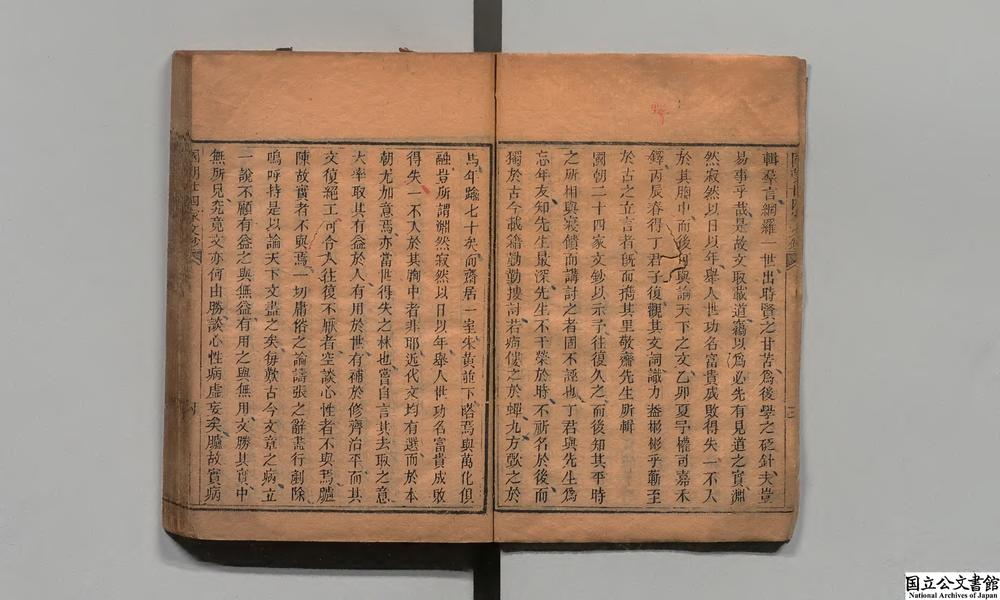 輯羣言網羅一世出時賢之甘苦爲後學之砭針夫豈
易事乎哉是故文取載道竊以爲必先有見道之實淵
然寂然以日以年舉人世功名富貴成敗得失一不入
於其胸中而後可與論天下之文乙卯夏予權司嘉禾
鐸丙辰春得丁君子復觀其文詞識力盎彬彬乎蘄至
於古之立言者旣而攜其里敬齋先生所輯
國朝二十四家文鈔以示予往復久之而後知其平時
之所相與寢饋而講討之者固不誣也丁君與先生爲
忘年友知先生最深先生不干榮於時不祈名於後而
獨於古今載籍勤勤摟討若痀僂之於蟬九方歅之於
馬年踰七十矣而齋居一室朱黃並下嗒焉與萬化俱
融豈所謂淵然寂然以日以年舉人世功名富貴成敗
得失一不入於其胸中者非耶近代文均有選而於本
朝尤加意焉亦當世得失之林也嘗自言其去取之意
大率取其有益於人有用於世有補於修齊治平而其
文復絕工可合人往復不厭者空談心性者不與焉臚
陳故實者不與焉一切庸俗之論譸張之辭盡行剷除
嗚呼持是以論天下文盡之矣每歎古今文章之病立
一說不顧有益之與無益有用之與無用文勝其實中
無所見究竟文亦何由勝談心性病虛妄矣臚故實病
國朝廿四家文鈔
国立公文書館
National Archives of Japan